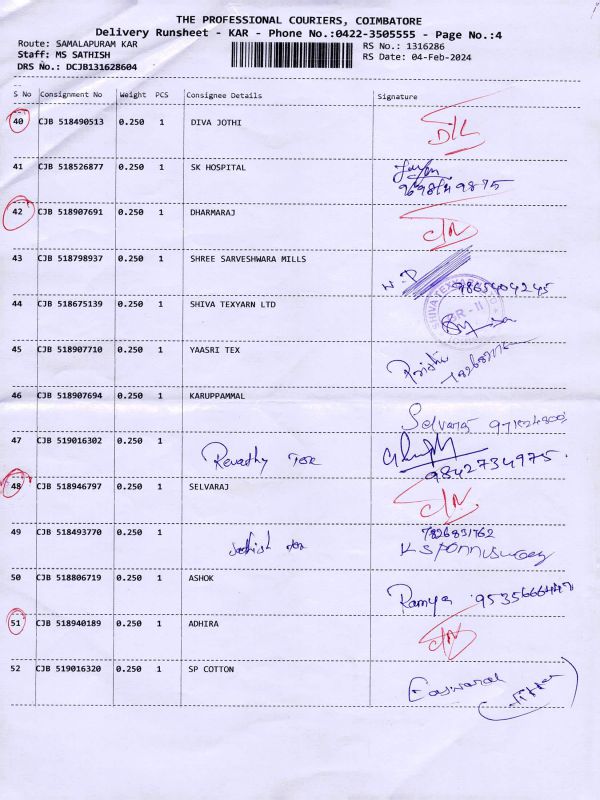 THE PROFESSIONAL COURIERS, COIMBATORE
Delivery Runsheet - KAR - Phone No.:0422-3505555 - Page No.:4
Route: SAMALAPURAM KAR
RS No.: 1316286
Staff: MS SATHISH
RS Date: 04-Feb-2024
DRS No.: DCJB131628604
S No Consignment No Weight PCS Consignee Details Signature
40 CJB 518490513 0.250 1 DIVA JOTHI D/L
41 CJB 518526877 0.250 1 SK HOSPITAL
42 CJB 518907691 0.250 1 DHARMARAJ C/N
43 CJB 518798937 0.250 1 SHREE SARVESHWARA MILLS
9865404245
44 CJB 518675139 0.250 1 SHIVA TEXYARN LTD
SHIVA TEXYARN
45 CJB 518907710 0.250 1 YAASRI TEX
46 CJB 518907694 0.250 1 KARUPPAMMAL
Selvaraj
47 CJB 519016302 0.250 1 Revathy Tex
9842734975.
48 CJB 518946797 0.250 1 SELVARAJ C/N
49 CJB 518493770 0.250 1 7826831762
50 CJB 518806719 0.250 1 ASHOK
Ramya
51 CJB 518940189 0.250 1 ADHIRA C/N
52 CJB 519016320 0.250 1 SP COTTON
Easwaran